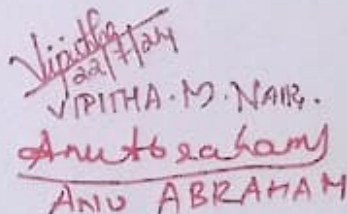 Vipitha
22/7/24
VIPITHA.M.NAIR.
Anu Abraham
ANU ABRAHAM